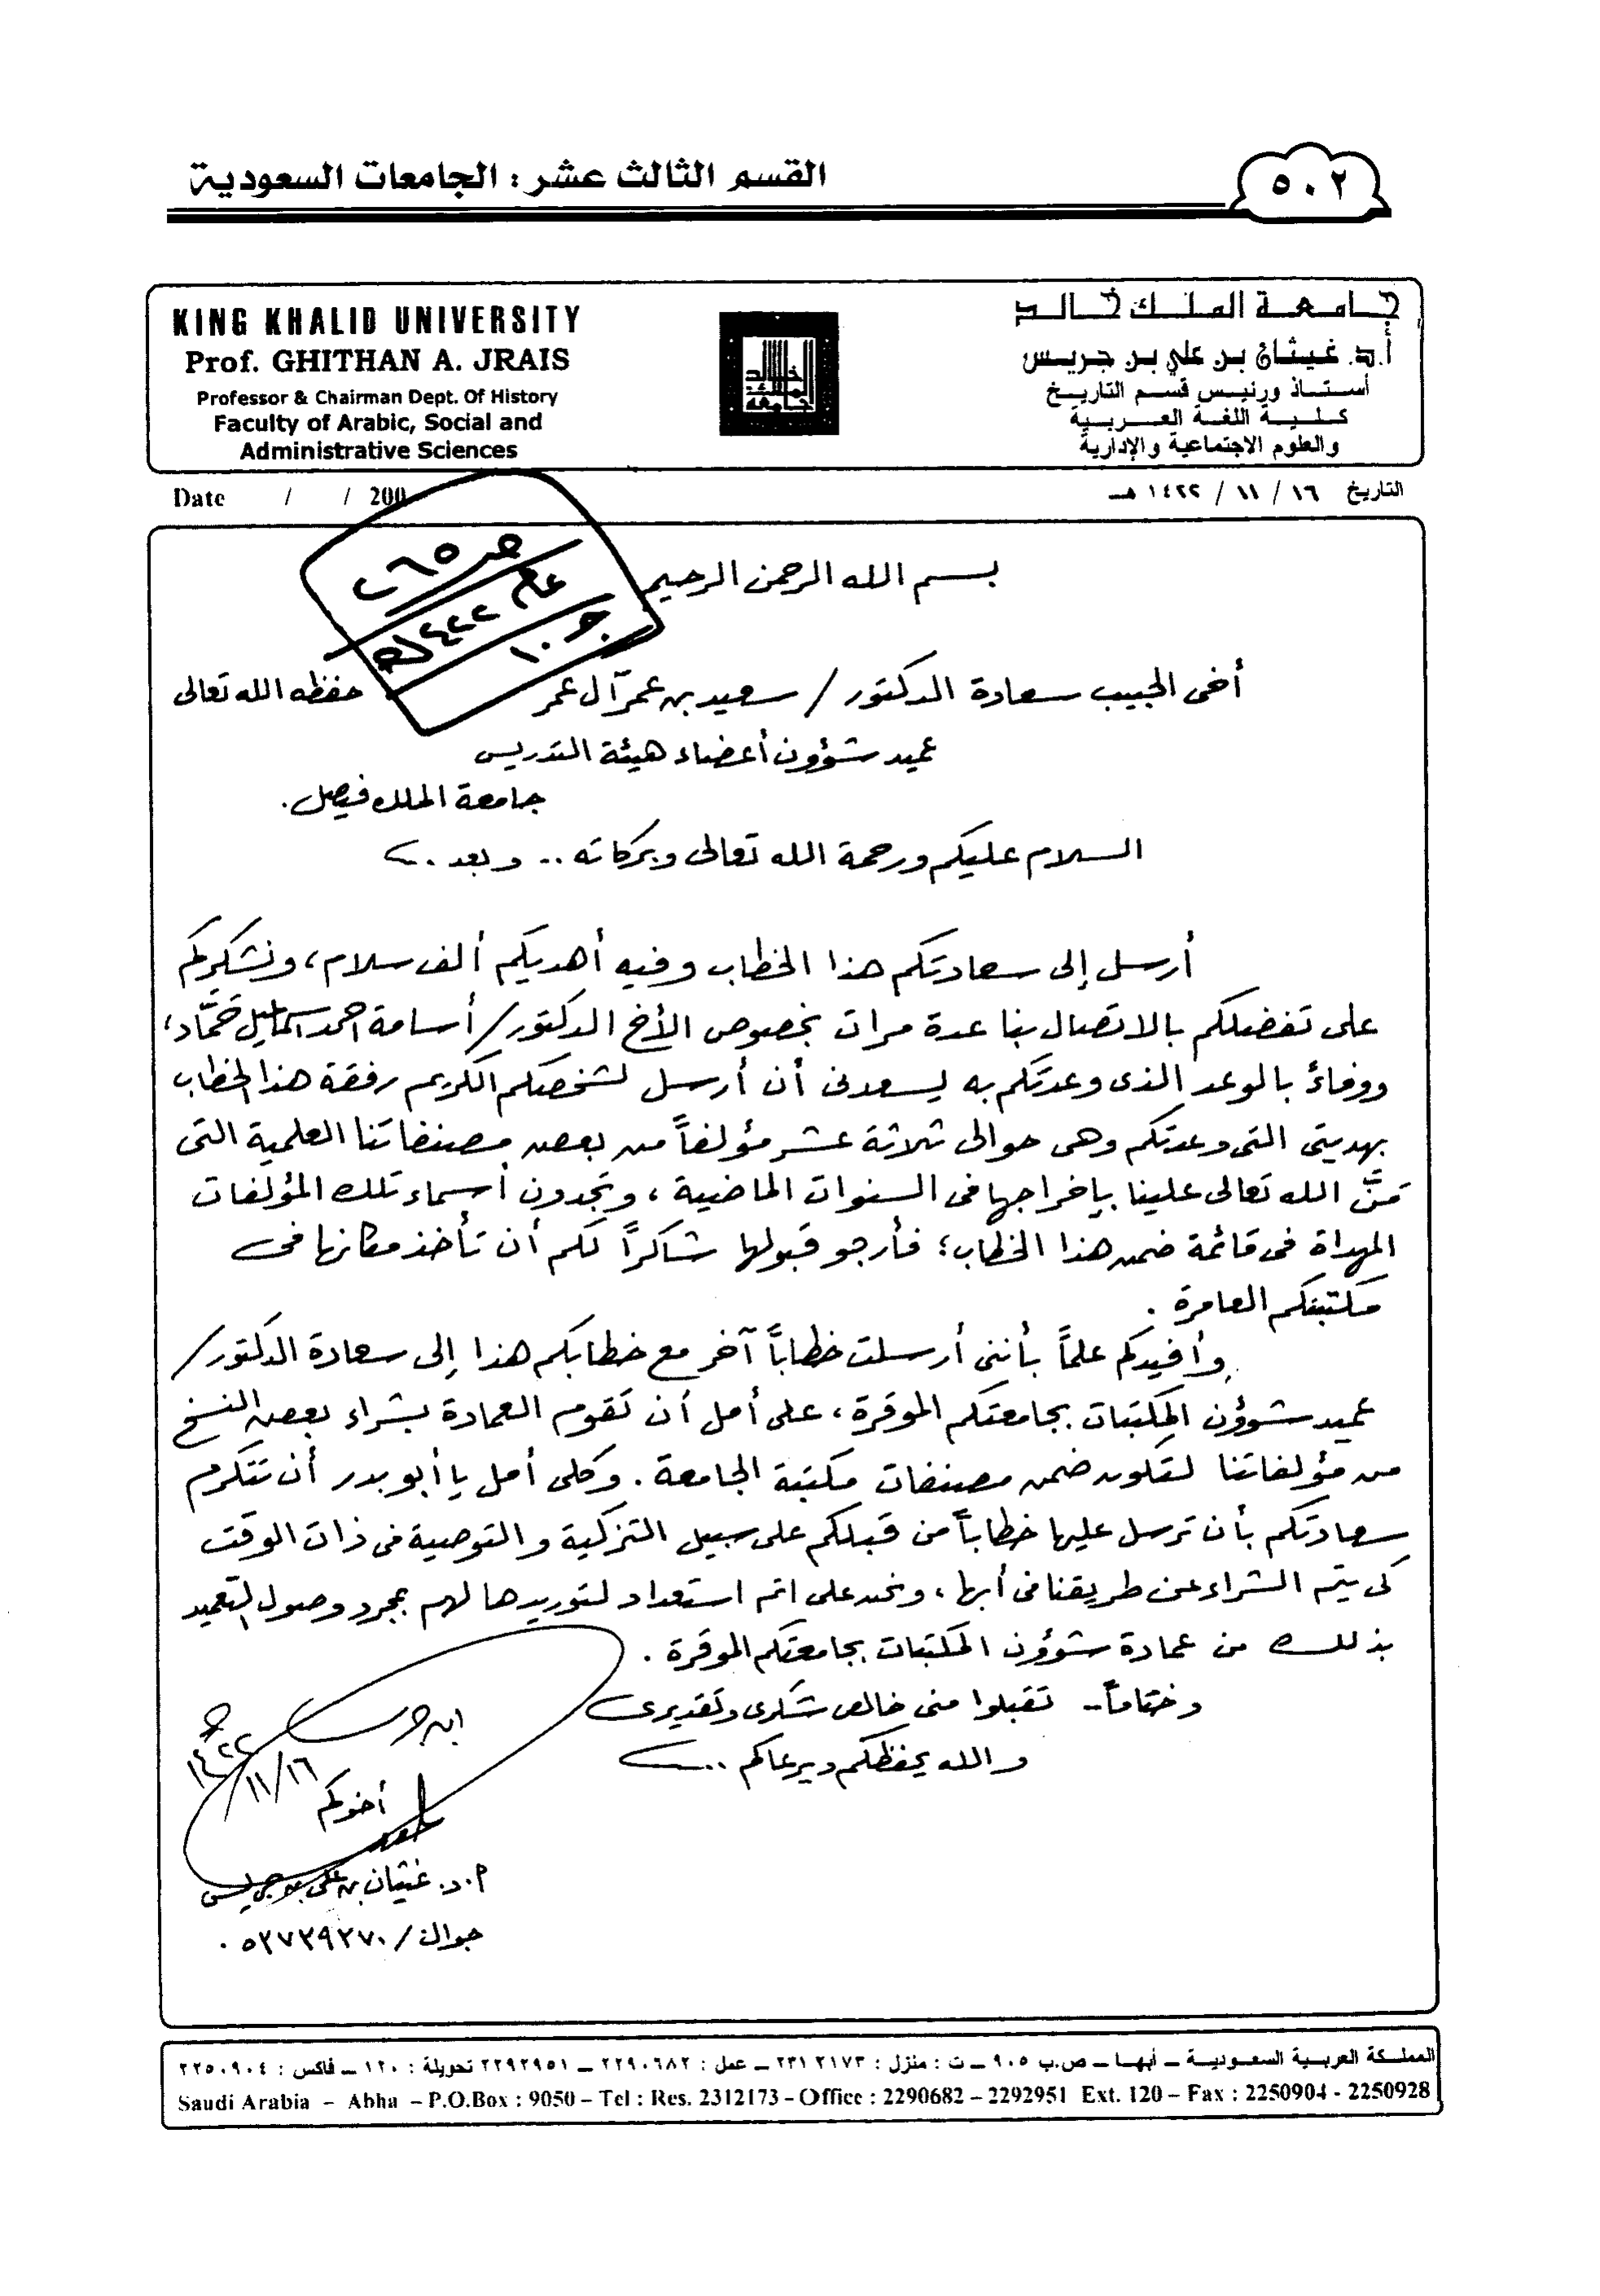 ٥٠٢
القسم الثالث عشر : الجامعات السعودية
KING KHALID UNIVERSITY
Prof. GHITHAN A. JRAIS
Professor & Chairman Dept. Of History
Faculty of Arabic, Social and
Administrative Sciences
جامعة الملك خالد
أ.د. غيثان بن علي بن جريس
أستاذ ورئيس قسم التاريخ
كلية اللغة العربية
والعلوم الاجتماعية والإدارية
جامعة الملك خالد
التاريخ ١٦ / ١١ / ١٤٢٢ هـ
Date / / 200
عام ١٤٢٢هـ
ج ١٠
بسم الله الرحمن الرحيم
أخي الحبيب سعادة الدكتور / سعيد بن عمر آل عمر حفظه الله تعالى
عميد شؤون أعضاء هيئة التدريس
جامعة الملك فيصل .
السلام عليكم ورحمة الله تعالى وبركاته .. وبعد ..
أرسل إلى سعادتكم هذا الخطاب وفيه أهديكم ألف سلام ، ونشكركم
على تفضلكم بالاتصال بنا عدة مرات بخصوص الأخ الدكتور / أسامة احمد اسماعيل حمَّاد ،
ووفاءً بالوعد الذى وعدتكم به يسعدنى أن أرسل لشخصكم الكريم رفقة هذا الخطاب
بهديتى التى وعدتكم وهى حوالى ثلاثة عشر مؤلفاً من بعض مصنفاتنا العلمية التى
مَنَّ الله تعالى علينا بإخراجها فى السنوات الماضية ، وتجدون أسماء تلك المؤلفات
المهداة فى قائمة ضمن هذا الخطاب ؛ فأرجو قبولها شاكراً لكم أن تأخذ مكانها فى
مكتبتكم العامرة .
وأفيدكم علماً بأننى أرسلت خطاباً آخر مع خطابكم هذا إلى سعادة الدكتور /
عميد شؤون المكتبات بجامعتكم الموقرة ، على أمل أن تقوم العمادة بشراء بعض النسخ
من مؤلفاتنا لتكون ضمن مصنفات مكتبة الجامعة . وكلى أمل يا أبو بدر أن تتكرم
سعادتكم بأن ترسل عليها خطاباً من قبلكم على سبيل التزكية والتوصية فى ذات الوقت
كى يتم الشراء عن طريقنا فى أبها ، ونحن على اتم استعداد لتوريدها لهم بمجرد وصول التعميد
بذلك من عمادة شؤون المكتبات بجامعتكم الموقرة .
وختاماً .. تقبلوا منى خالص شكرى وتقديرى
والله يحفظكم ويرعاكم ..
ابن جريس
١٦/١١/١٤٢٢هـ
أخوكم
أ.د. غيثان بن على بن جريس
جوال / ٠٥٣٧٣٩٣٧٠
المملكة العربية السعودية – أبها – ص.ب ٩٠٥ – ت : منزل : ٢٣١٢١٧٣ – عمل : ٢٢٩٠٦٨٢ – ٢٢٩٢٩٥١ تحويلة : ١٢٠ – فاكس : ٢٢٥٠٩٠٤
Saudi Arabia – Abha – P.O.Box : 9050 – Tel : Res. 2312173 – Office : 2290682 – 2292951 Ext. 120 – Fax : 2250904 - 2250928